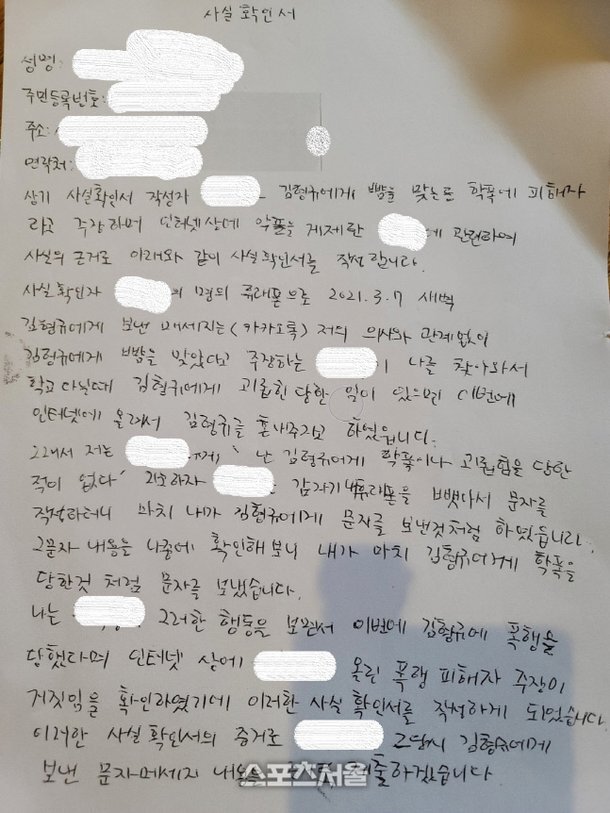 사실확인서
성명:
주민등록번호:
주소:
연락처:
상기 사실확인서 작성자 김형규에게 뺨을 맞는등 학폭에 피해자
라고 주장하며 인터넷상에 악플을 게제한 에 관련하여
사실의 근거로 아래와 같이 사실확인서를 작성합니다.
사실확인자 의 명의 휴대폰으로 2021.3.7 새벽
김형규에게 보낸 메세지는(카카오톡) 저의 의사와 관계없이
김형규에게 뺨을 맞았다고 주장하는 나를 찾아와서
학교다닐때 김형규에게 괴롭힘 당한 일이 있으면 이번에
인터넷에 올려서 김형규를 혼내주자고 하였읍니다.
그래서 저는 에게 난 김형규에게 학폭이나 괴롭힘을 당한
적이 없다' 감자기 휴대폰을 뺏어서 문자를
작성하더니 마치 내가 김형규에게 문자를 보낸것처럼 하였읍니다.
그문자 내용을 나중에 확인해보니 내가 마치 김형규에게 학폭을
당한것 처럼 문자를 보냈습니다.
나는 그러한 행동을 보면서 이번에 김형규에 폭행을
당했다며 인터넷 상에 올린 폭행 피해자 주장이
거짓임을 확인하였기에 이러한 사실확인서를 작성하게 되었습니다
이러한 사실확인서의 증거로 그당시 김형규에게
보낸 문자메세지 내용을 제출하겠습니다
스포츠서울